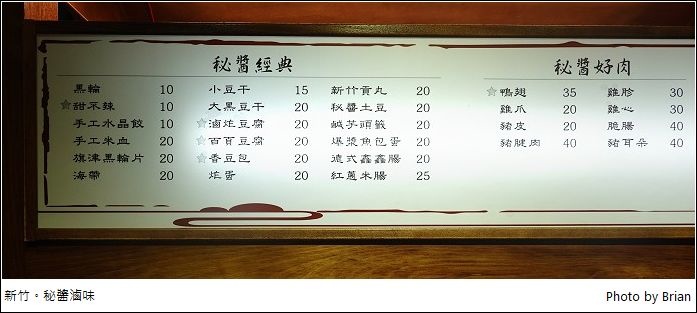 秘醬經典
黑輪 10
☆甜不辣 10
手工水晶餃 10
手工米血 20
旗津黑輪片 20
海帶 20
小豆干 15
大黑豆干 20
☆滷炸豆腐 20
☆百頁豆腐 20
☆香豆包 20
炸蛋 20
新竹貢丸 20
秘醬土豆 20
鹹芋頭籤 20
爆漿魚包蛋 20
德式鑫鑫腸 20
紅蔥米腸 25
秘醬好肉
☆鴨翅 35
雞爪 20
豬皮 20
豬腱肉 40
雞胗 30
雞心 30
脆腸 40
豬耳朵 40
新竹。秘醬滷味
Photo by Brian